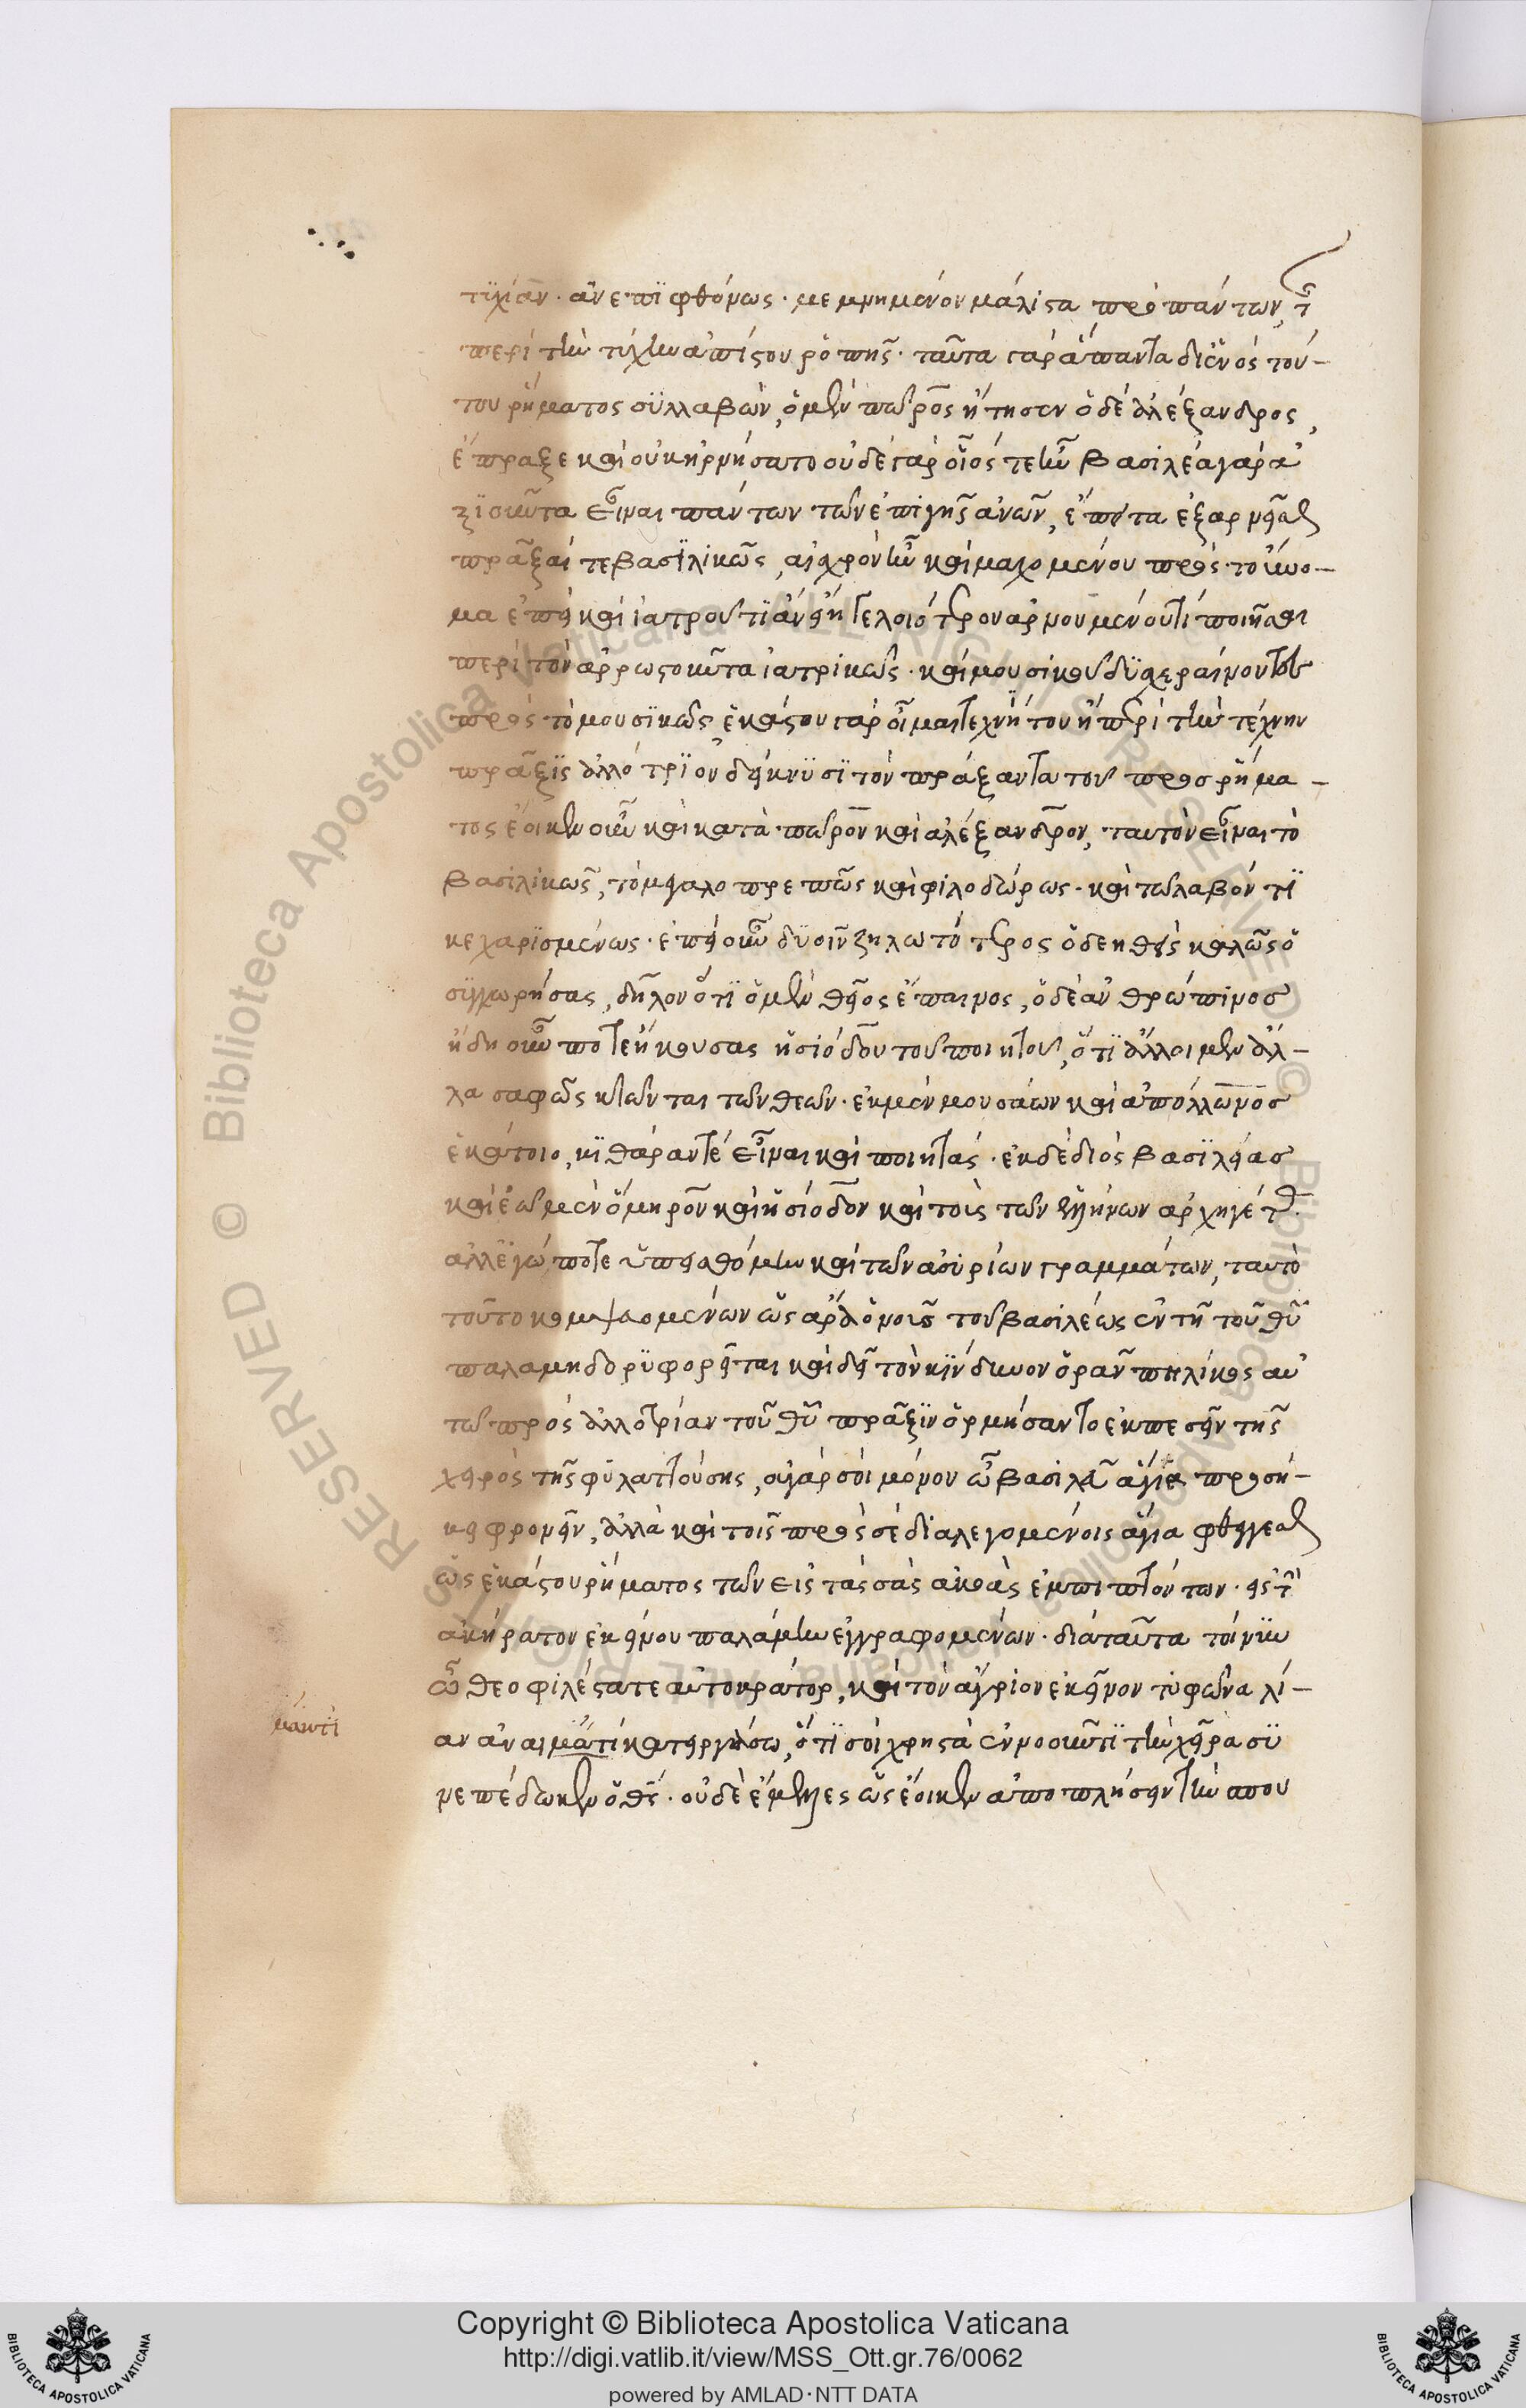 τϋχίαν· ἀν ἐπϊφθόνως· με μνημένον μάλιστα πρὸ πάντων, τ
περὶ τὴν τύχην ἀπίστου ῥοπῆς· ταῦτα γὰρ ἅπαντα δι ἑνὸς τού-
του ῥήματος σϋλλαβὼν, ὁ μὲν πῶρος ἤτησεν ὁ δὲ ἀλέξανδρος,
ἔπραξε καὶ οὐκ ἠρνήσατο οὐδὲ γὰρ οἷός τε ἦν βασιλέα γὰρ ἀ
ξϊοῦντα εἶναι πάντων τῶν ἐπὶ γῆς ἀνῶν, ἔπειτα ἐξαρνεῖσθαι
πρᾶξαί τε βασϊλικῶς, αἰσχρὸν ἦν καὶ μαχομένου πρὸς τοὔνο-
μα ἐπεὶ καὶ ἰατροῦ τϊ ἂν εἴη γελοιότερον ἀρνουμένου τί ποιῆσαι
περὶ τὸν ἀρρωστοῦντα ἰατρικῶς· καὶ μουσικοῦ δϋσχεραίνοντος
πρὸς τὸ μουσϊκῶς, ἑκάστου γὰρ οἶμαι τεχνίτου ἡ περὶ τὴν τέχνην
πρᾶξϊς ἀλλότρϊον δείκνϋσϊ τὸν πράξαντα τοῦ προσρήμα-
τος ἔοικεν οὖν καὶ κατὰ πῶρον καὶ ἀλέξανδρον, ταυτὸν εἶναι τὸ
βασιλικῶς, τὸ μεγαλοπρεπῶς καὶ φιλοδώρως· καὶ τῶ λαβόντϊ
κεχαρϊσμένως· ἐπεὶ οὖν δϋοῖν ζηλωτότερος ὁ δεηθεὶς καλῶς ὁ
σϋγχωρήσας, δῆλον ὅτϊ ὁ μὲν θεῖος ἔπαινος, ὁ δὲ ἀνθρώπινος
ἤδη οὖν ποτε ἤκουσας ἡσιόδου τοῦ ποιητοῦ, ὅτϊ ἄλλοι μὲν ἄλ-
λα σαφῶς κτῶνται τῶν θεῶν· ἐκ μὲν μουσάων καὶ ἀπόλλωνος
ἑκάτοιο, κϊθάραν τε εἶναι καὶ ποιητάς· ἐκ δὲ διὸς βασϊλείας
καὶ ἐῶμεν ὅμηρον καὶ ἡσίοδον καὶ τοὺς τῶν ἑλλήνων ἀρχηγέτ
ἀλλ ἐγώ ποτε ὑπεισθόμην καὶ τῶν ἀσυρίων γραμμάτων, ταυτὸ
τοῦτο κομψευομένων ὡς ἄρα ὁ νοῦς τοῦ βασιλέως ἐν τῆ τοῦ θῦ
παλάμη δορϋφορεῖται καὶ δεῖ τὸν κϊνδυνον ὁρᾶν πηλίκος αὐ
τῶ πρὸς ἀλλοτρίαν τοῦ θῦ πρᾶξϊν ὁρμήσαντο ἐκπεσεῖν τῆς
χειρὸς τῆς φϋλαττούσης, οὐ γὰρ σοὶ μόνον ὦ βασιλεῦ ἅγια προσή-
κει φρονεῖν, ἀλλὰ καὶ τοῖς πρὸς σὲ διαλεγομένοις ἅγια φθέγγεσθαι
ὡς ἑκάστου ῥήματος τῶν εἰς τὰς σὰς ἀκοὰς ἐμπιπτόντων· εἰς τὴν
ἀκήρατον ἐκείνου παλάμην ἐγγραφομένων· διὰ ταῦτα τοίνυν
ὦ θεοφιλέστατε αὐτοκράτορ, καὶ τὸν ἄγριον ἐκεῖνον τυφῶνα λί-
αν ἀναιματὶ κατειργάσω, ὅτϊ σοὶ χρηστὰ ἐννοοῦντϊ τὴν χεῖρα σϋ
μαωτὶ
νεπέδωκεν ὁ θς· οὐδὲ ἔμελλες ὡς ἔοικεν ἀποπλήσειν τὴν απου
Copyright © Biblioteca Apostolica Vaticana
http://digi.vatlib.it/view/MSS_Ott.gr.76/0062
powered by AMLAD·NTT DATA